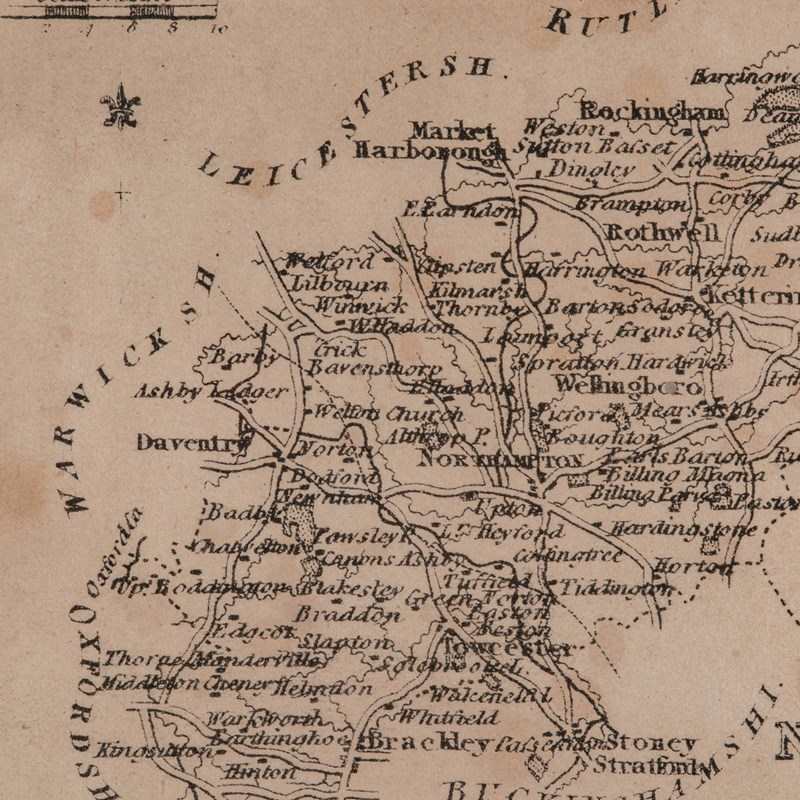 2 4 6 8 10
RUTL
LEICESTERSH.
Harringwo
Rockingham
Market
Harborough
Weston
Sutton Basset
Dean
Dingley
Cottingha
Brampton
Corby
E. Farndon
Rothwell
Sudb
Welford
Clipsten
Harrington
Warkton
Lilbourn
Kilmarsh
Kettering
Winwick
Thornby
Barton
W. Haddon
Lamport
Gransley
WARWICKSH.
Crick
Barby
Ravensthorp
Spratton
Hardwick
Irth
Ashby Ledger
E. Haddon
Wellingboro
Welton
Church
Picford
Mears Ashby
Daventry
Althrop P.
Boughton
Norton
NORTHAMPTON
Earls Barton
Dodford
Billing Magna
Newnham
Upton
Billing Parva
Easton
Badby
Fawsley P.
Lr. Heyford
Hardingstone
Canons Ashby
Collingtree
Horton
Up. Boddington
Blakesley
Tiddington
Green Norton
Braddon
Easton
Neston
Edgcot
Slapton
Towcester
Thorpe Manderville
Middleton Cheney
Helmdon
Wakefield
Warkworth
Whitfield
Kingsutton
Farthinghoe
Brackley
Stoney
Stratford
Hinton
OXFORDSH
BUCKINGHAMSHI.
N